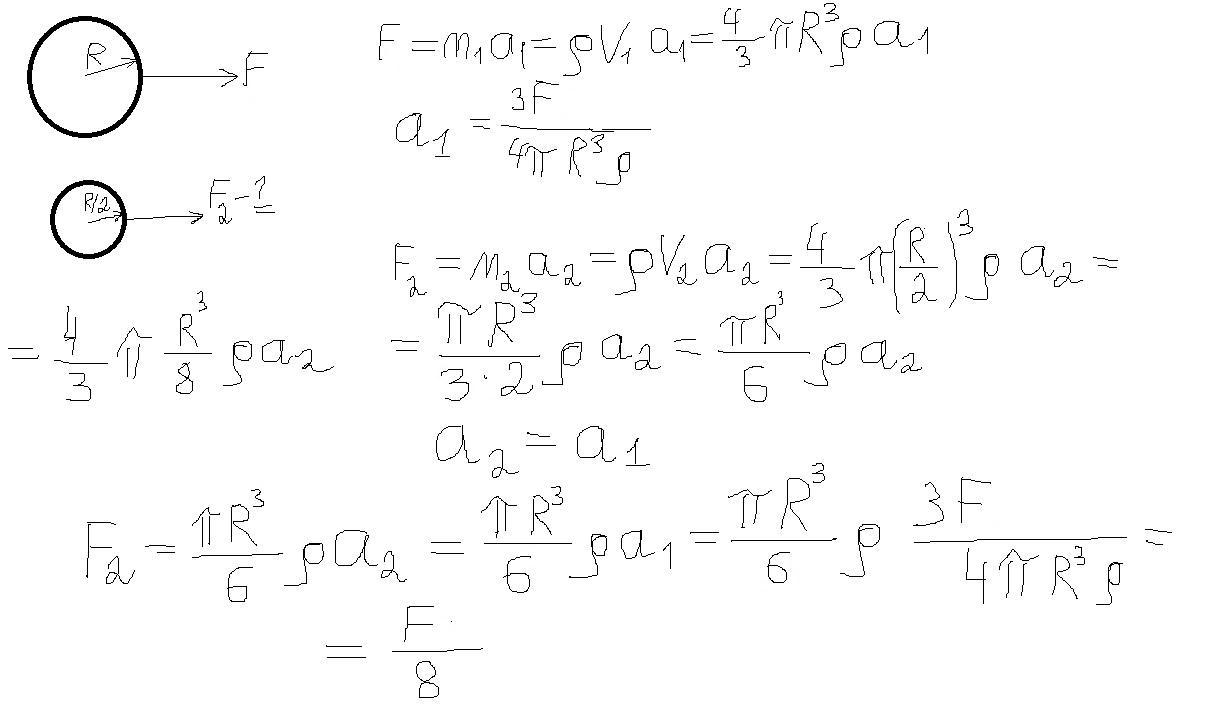 R F
F = m₁a₁ = ρV₁ a₁ = 4/3 πR³ρ a₁
a₁ = 3F/(4πR³ρ)
R/2 F₂ - ?
F₂ = m₂ a₂ = ρV₂ a₂ = 4/3 π(R/2)³ρ a₂ =
= 4/3 π R³/8 ρa₂ = πR³/(3·2) ρ a₂ = πR³/6 ρ a₂
a₂ = a₁
F₂ = πR³/6 ρa₂ = πR³/6 ρa₁ = πR³/6 ρ 3F/(4πR³ρ) =
= F/8